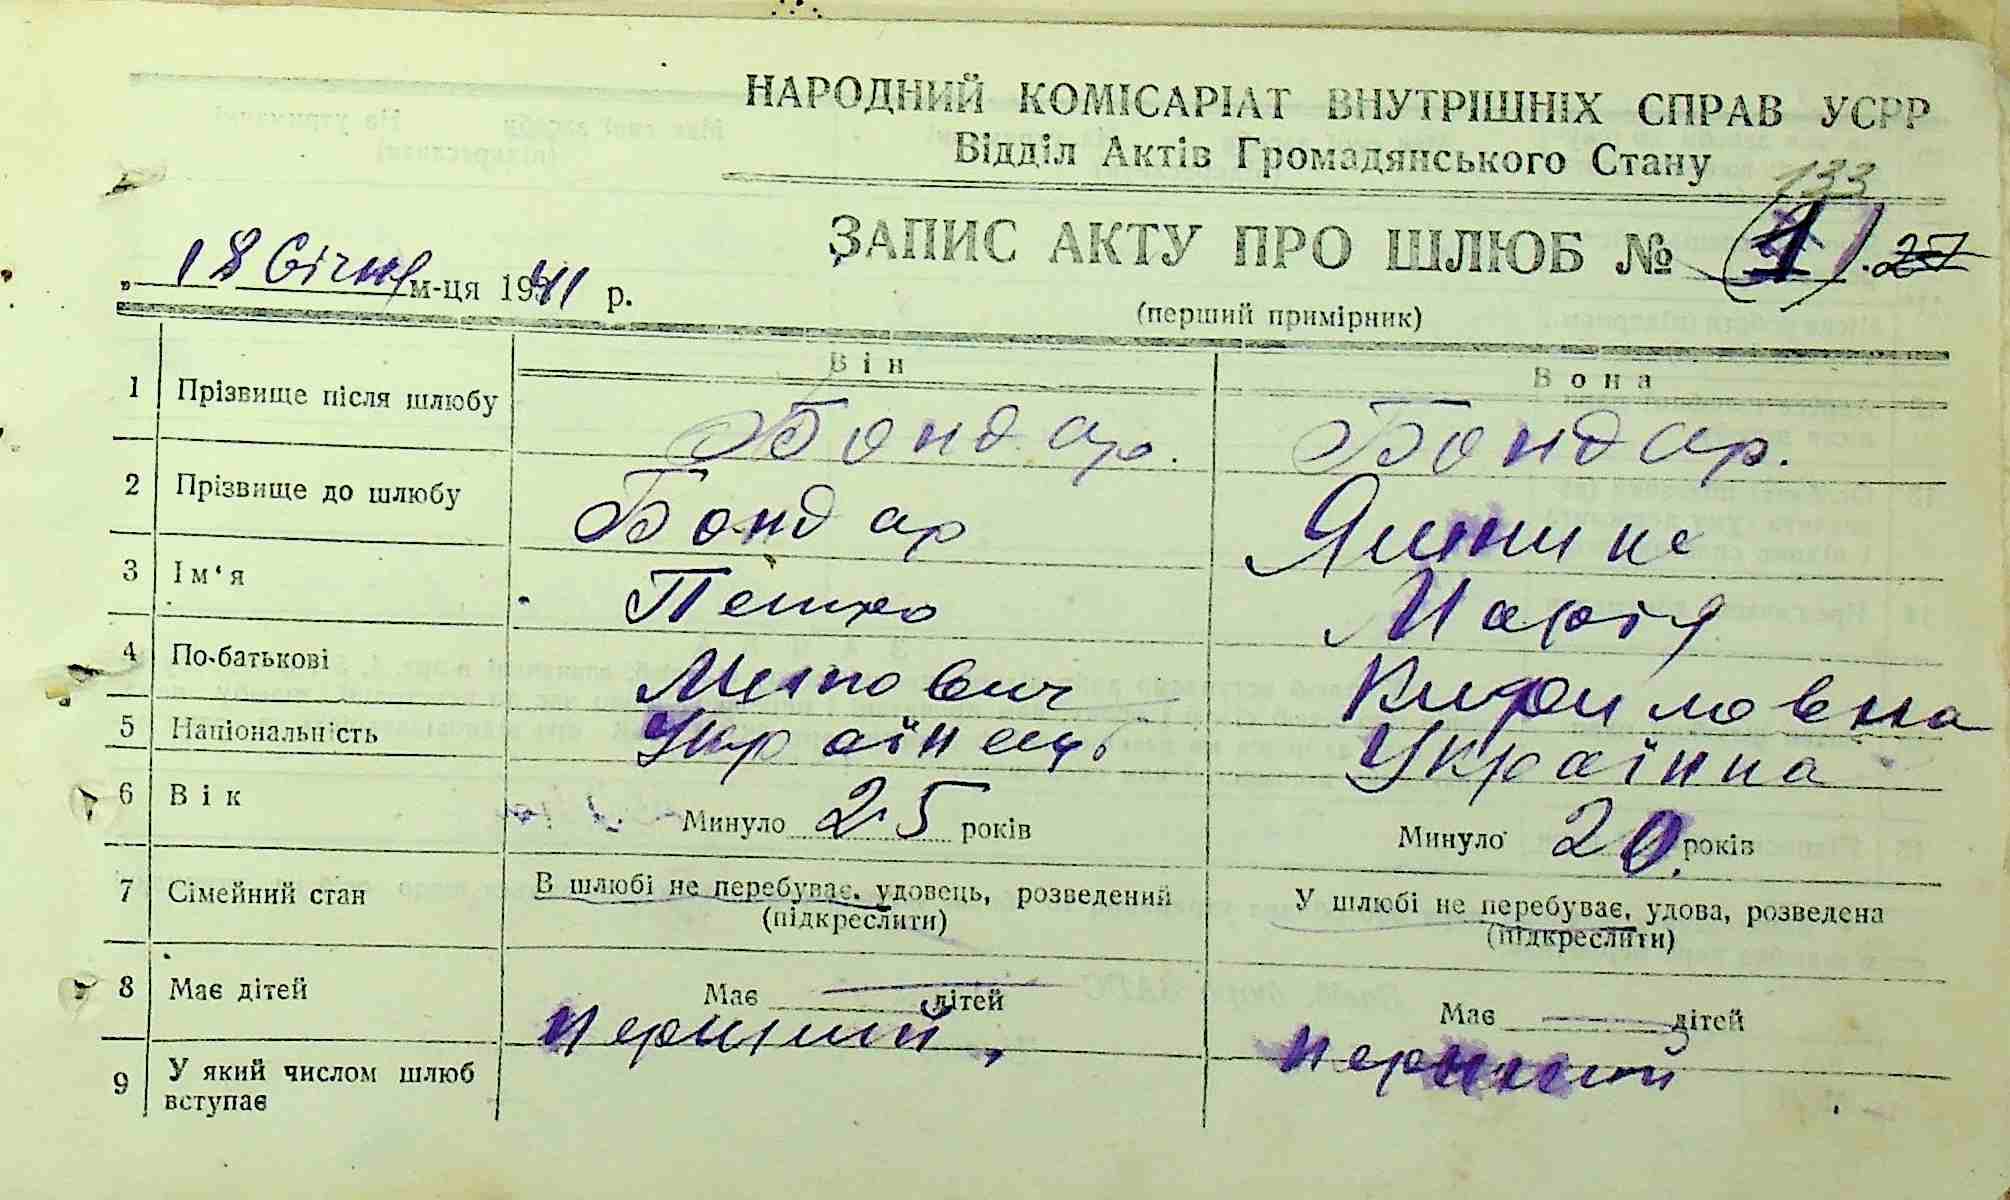 НАРОДНИЙ КОМІСАРІАТ ВНУТРІШНІХ СПРАВ УСРР
Відділ Актів Громадянського Стану
133
ЗАПИС АКТУ ПРО ШЛЮБ № 1 27
„18 Січня м-ця 1941 р.
(перший примірник)
Він Вона
1 Прізвище після шлюбу Бондар. Бондар.
2 Прізвище до шлюбу Бондар
3 Ім‘я Петро Марія
4 По-батькові Кириловна
5 Національність Українець Українка
6 Вік Минуло 25 років Минуло 20 років
7 Сімейний стан В шлюбі не перебуває, удовець, розведений У шлюбі не перебуває, удова, розведена
(підкреслити) (підкреслити)
8 Має дітей Має — дітей Має — дітей
9 У який числом шлюб вступає перший перший